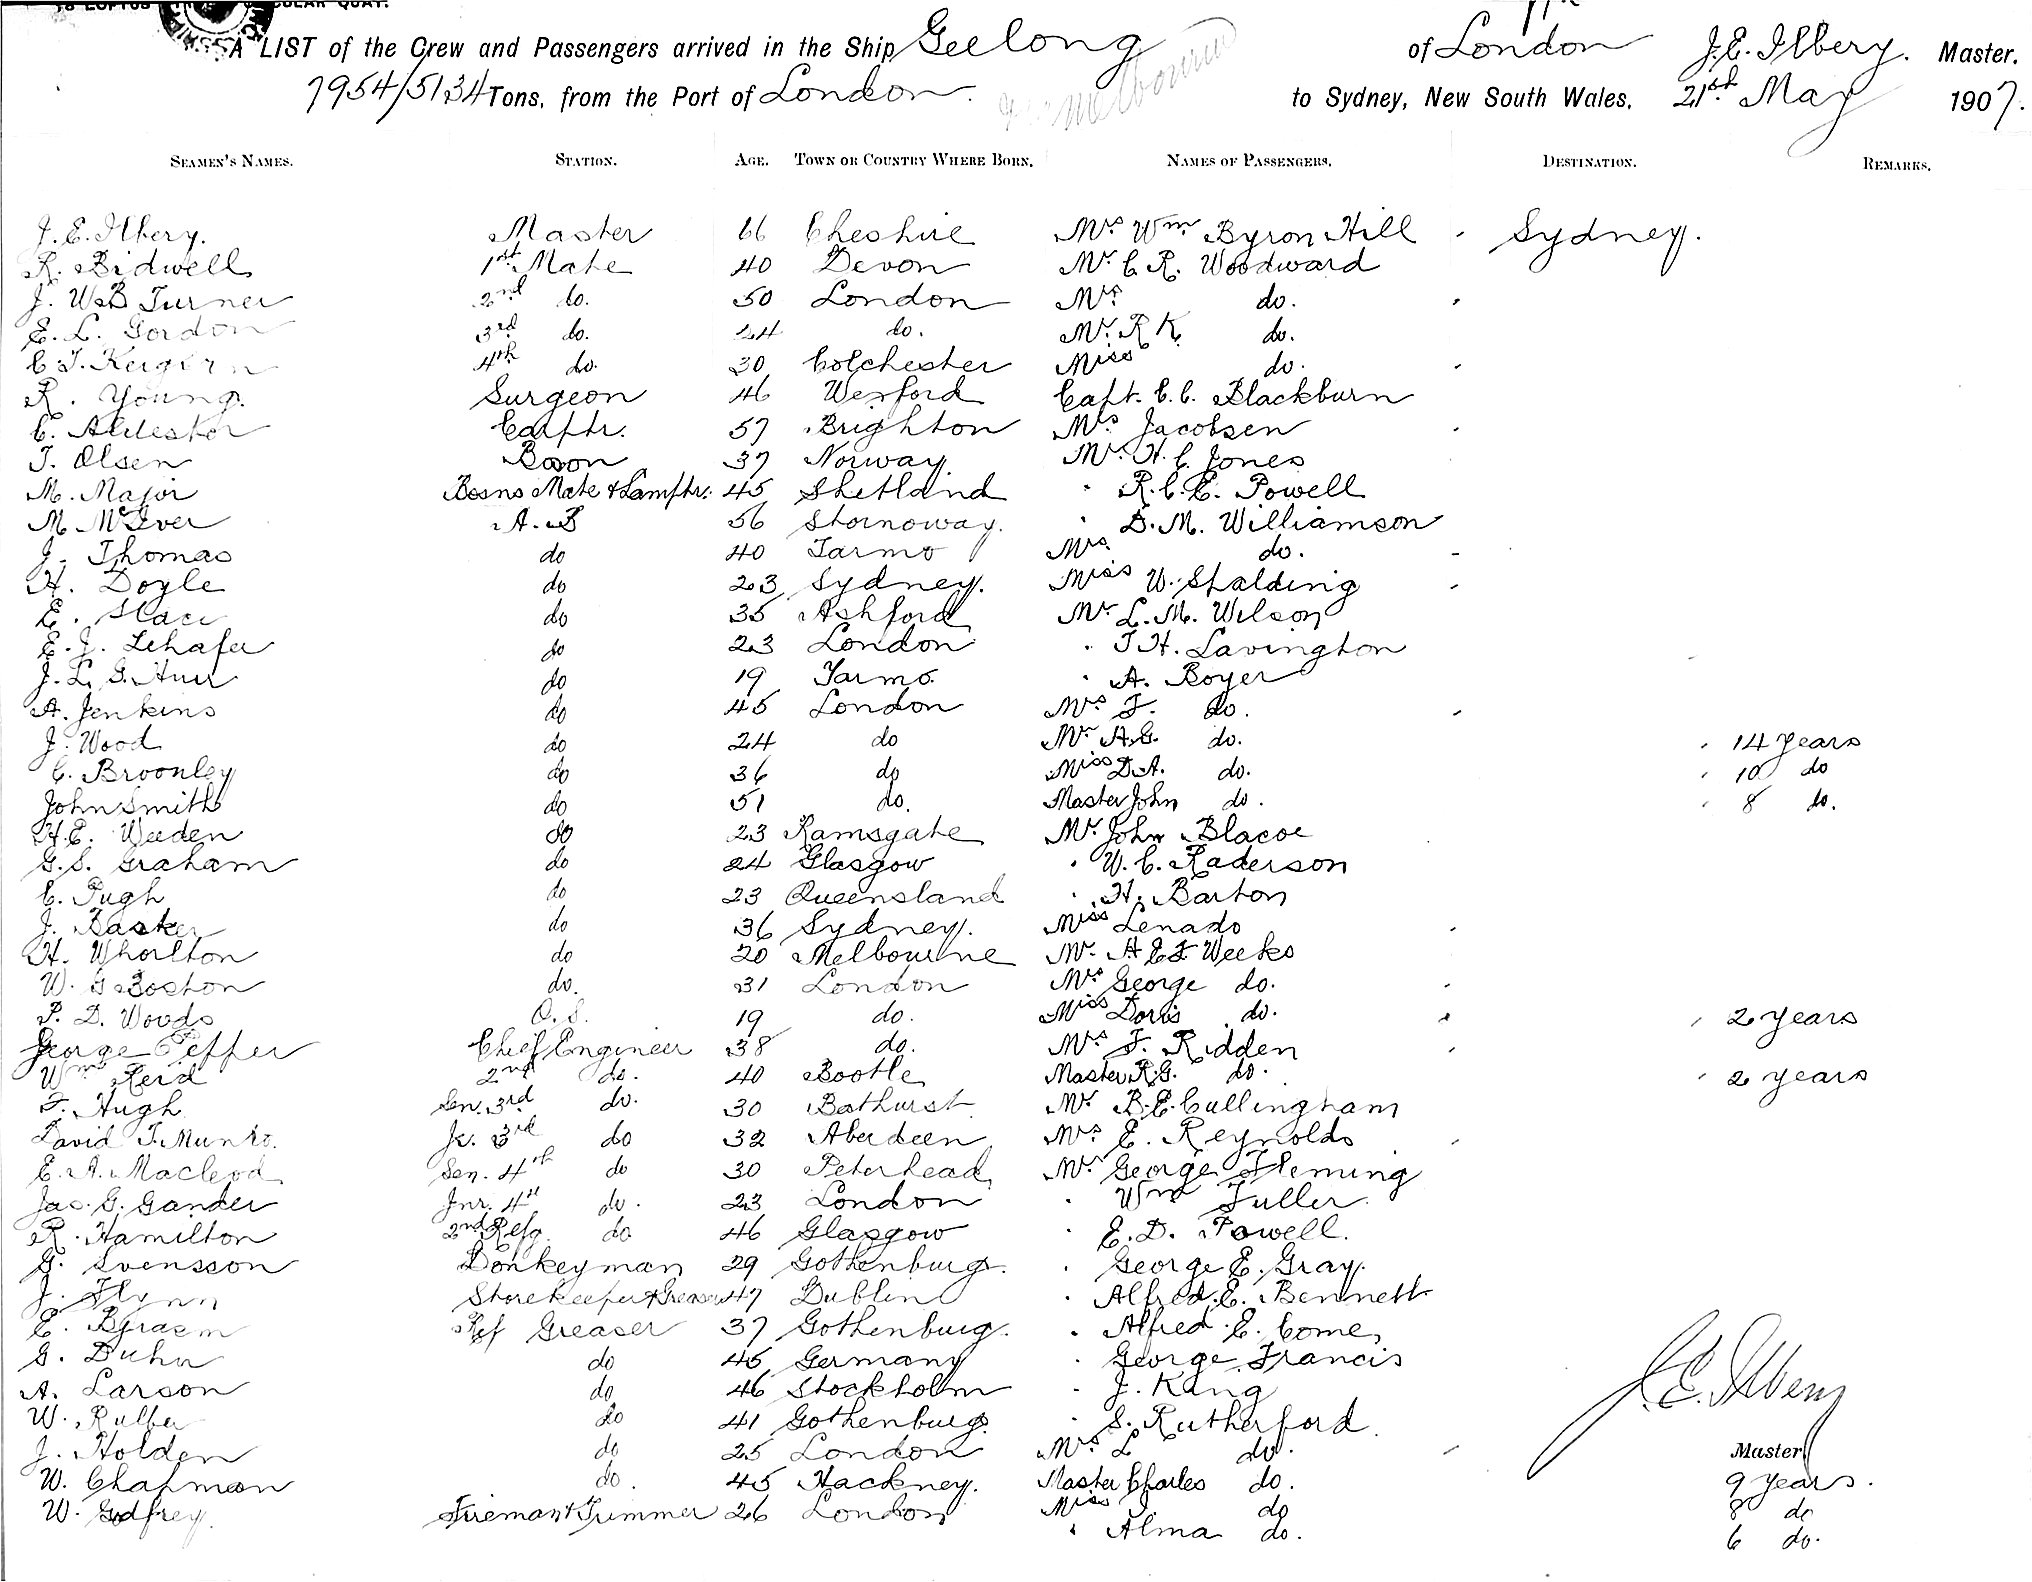 A LIST of the Crew and Passengers arrived in the Ship Geelong of London J.E. Ilbery. Master.
7954/5134 Tons, from the Port of London. Melbourne to Sydney, New South Wales, 21st May 1907.
SEAMEN'S NAMES. STATION. AGE. TOWN OR COUNTRY WHERE BORN. NAMES OF PASSENGERS. DESTINATION. REMARKS.
J. E. Ilbery. Master 66 Cheshire Mrs Wm Byron Hill Sydney.
R. Bidwell 1st Mate 40 Devon Mr C. R. Woodward
J. W. B Turner 2nd do. 50 London Mrs do.
E. L. Gordon 3rd do. 24 do. Mr. R K. do.
C J. 4th do. 30 Colchester Miss do.
R. Young. Surgeon 46 Wexford Capt. C. C. Blackburn
C. Carptr. 57 Brighton Mrs Jacobsen
T. Olsen Bosn 37 Norway. Mr. H. C. Jones
M. Major Bosns Mate & Lamptr. 45 Shetland " R. C. E. Powell
M McIver A. B 56 Stornoway. " D. M. Williamson
J. Thomas do 40 Mrs. do.
H. Doyle do 23 Sydney. Miss W. Spalding
E. do 35 Ashford Mr L. M. Wilson
E. J. do 23 London " T H. Lavington
J. L. G. do 19 " A. Boyer
A. Jenkins do 45 London Mrs F. do.
J. Wood do 24 do Mr A. G. do. 14 years
C. Broonley do 36 do Miss D. A. do. 10 do
John Smith do 51 do. Master John do. 8 do.
H. E. Weeden do 23 Ramsgate Mr. John Blacoe
G. S. Graham do 24 Glasgow " W. C. Raderson
C. Pugh do 23 Queensland " H. Barton
J. do 36 Sydney. Miss Lenado
H. Whorlton do 20 Melbourne Mr. H E F Weeks
W. G Boston do. 31 London Mrs George do.
P. D. Woods O. S. 19 do. Miss Doris do. 2 years
George Peffer Chief Engineer 38 do. Mrs F. Ridden
Wm Reid 2nd do. 40 Bootle Master R. G. do. 2 years
F. Hugh Sen. 3rd do. 30 Bathurst Mr B. E. Cullingham
David T. Munro. Jr. 3rd do 32 Aberdeen Mrs E. Reynolds
E. A. Macleod Sen. 4th do 30 Peterhead Mr George Fleming
Jas. G. Gander Jnr. 4th do. 23 London " Wm Fuller
R. Hamilton 2nd Refg. do 46 Glasgow " E. D. Powell.
G. Svensson Donkeyman 29 Gothenburg. " George E. Gray.
J. Flynn Storekeeper & Greaser 47 Dublin " Alfred. E. Bennett
E. Ref Greaser 37 Gothenburg. " Alfred. E. Come,
G. Duhn do 45 Germany " George Francis
A. Larson do 46 Stockholm " J. King
W. do 41 Gothenburg. " S. Rutherford
J. Holden do 25 London Mrs L do.
J.E. Ilbery
Master
W. Chapman do. 45 Hackney. Master Charles do. 9 years.
W. Godfrey. Fireman & Trimmer 26 London Miss do 8 do
" Alma do. 6 do.